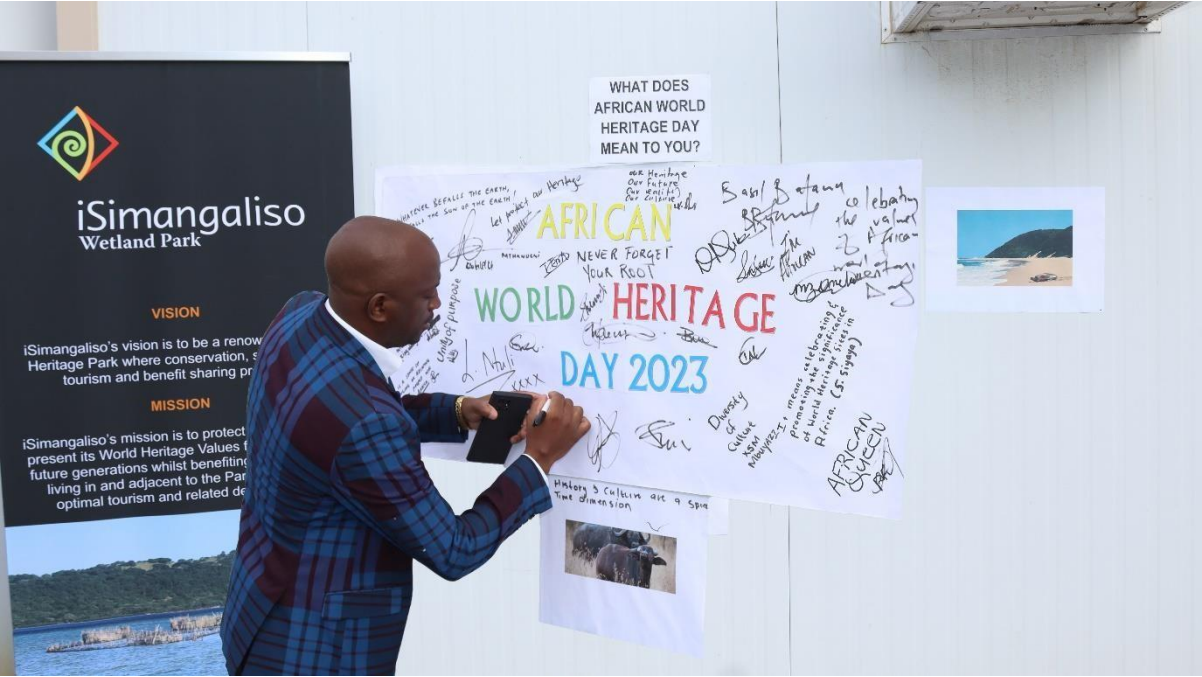 iSimangaliso
Wetland Park
VISION
iSimangaliso's vision is to be a
Heritage Park where conservation,
tourism and benefit sharing
MISSION
iSimangaliso's mission is to protect
present its World Heritage Values
future generations whilst benefiting
living in and adjacent to the
optimal tourism and related
WHAT DOES
AFRICAN WORLD
HERITAGE DAY
MEAN TO YOU?
WHATEVER BEFALLS THE EARTH,
THE SUN OF THE EARTH
Let protect our Heritage
our Heritage
Our Future
Our identity
Our culture
AFRICAN
NEVER FORGET
YOUR ROOT
WORLD HERITAGE
DAY 2023
Unity of purpose
L. Ntuli
xxxx
Basil Batana
I'm
AFRICAN
celebrating
the values
of African
Day
Diversity
of
Culture
XSM
It means celebrating &
promoting the significance
of World Heritage Sites in
Africa. (S. Sigaga)
AFRICAN
QUEEN
History & Culture are a
Time dimension